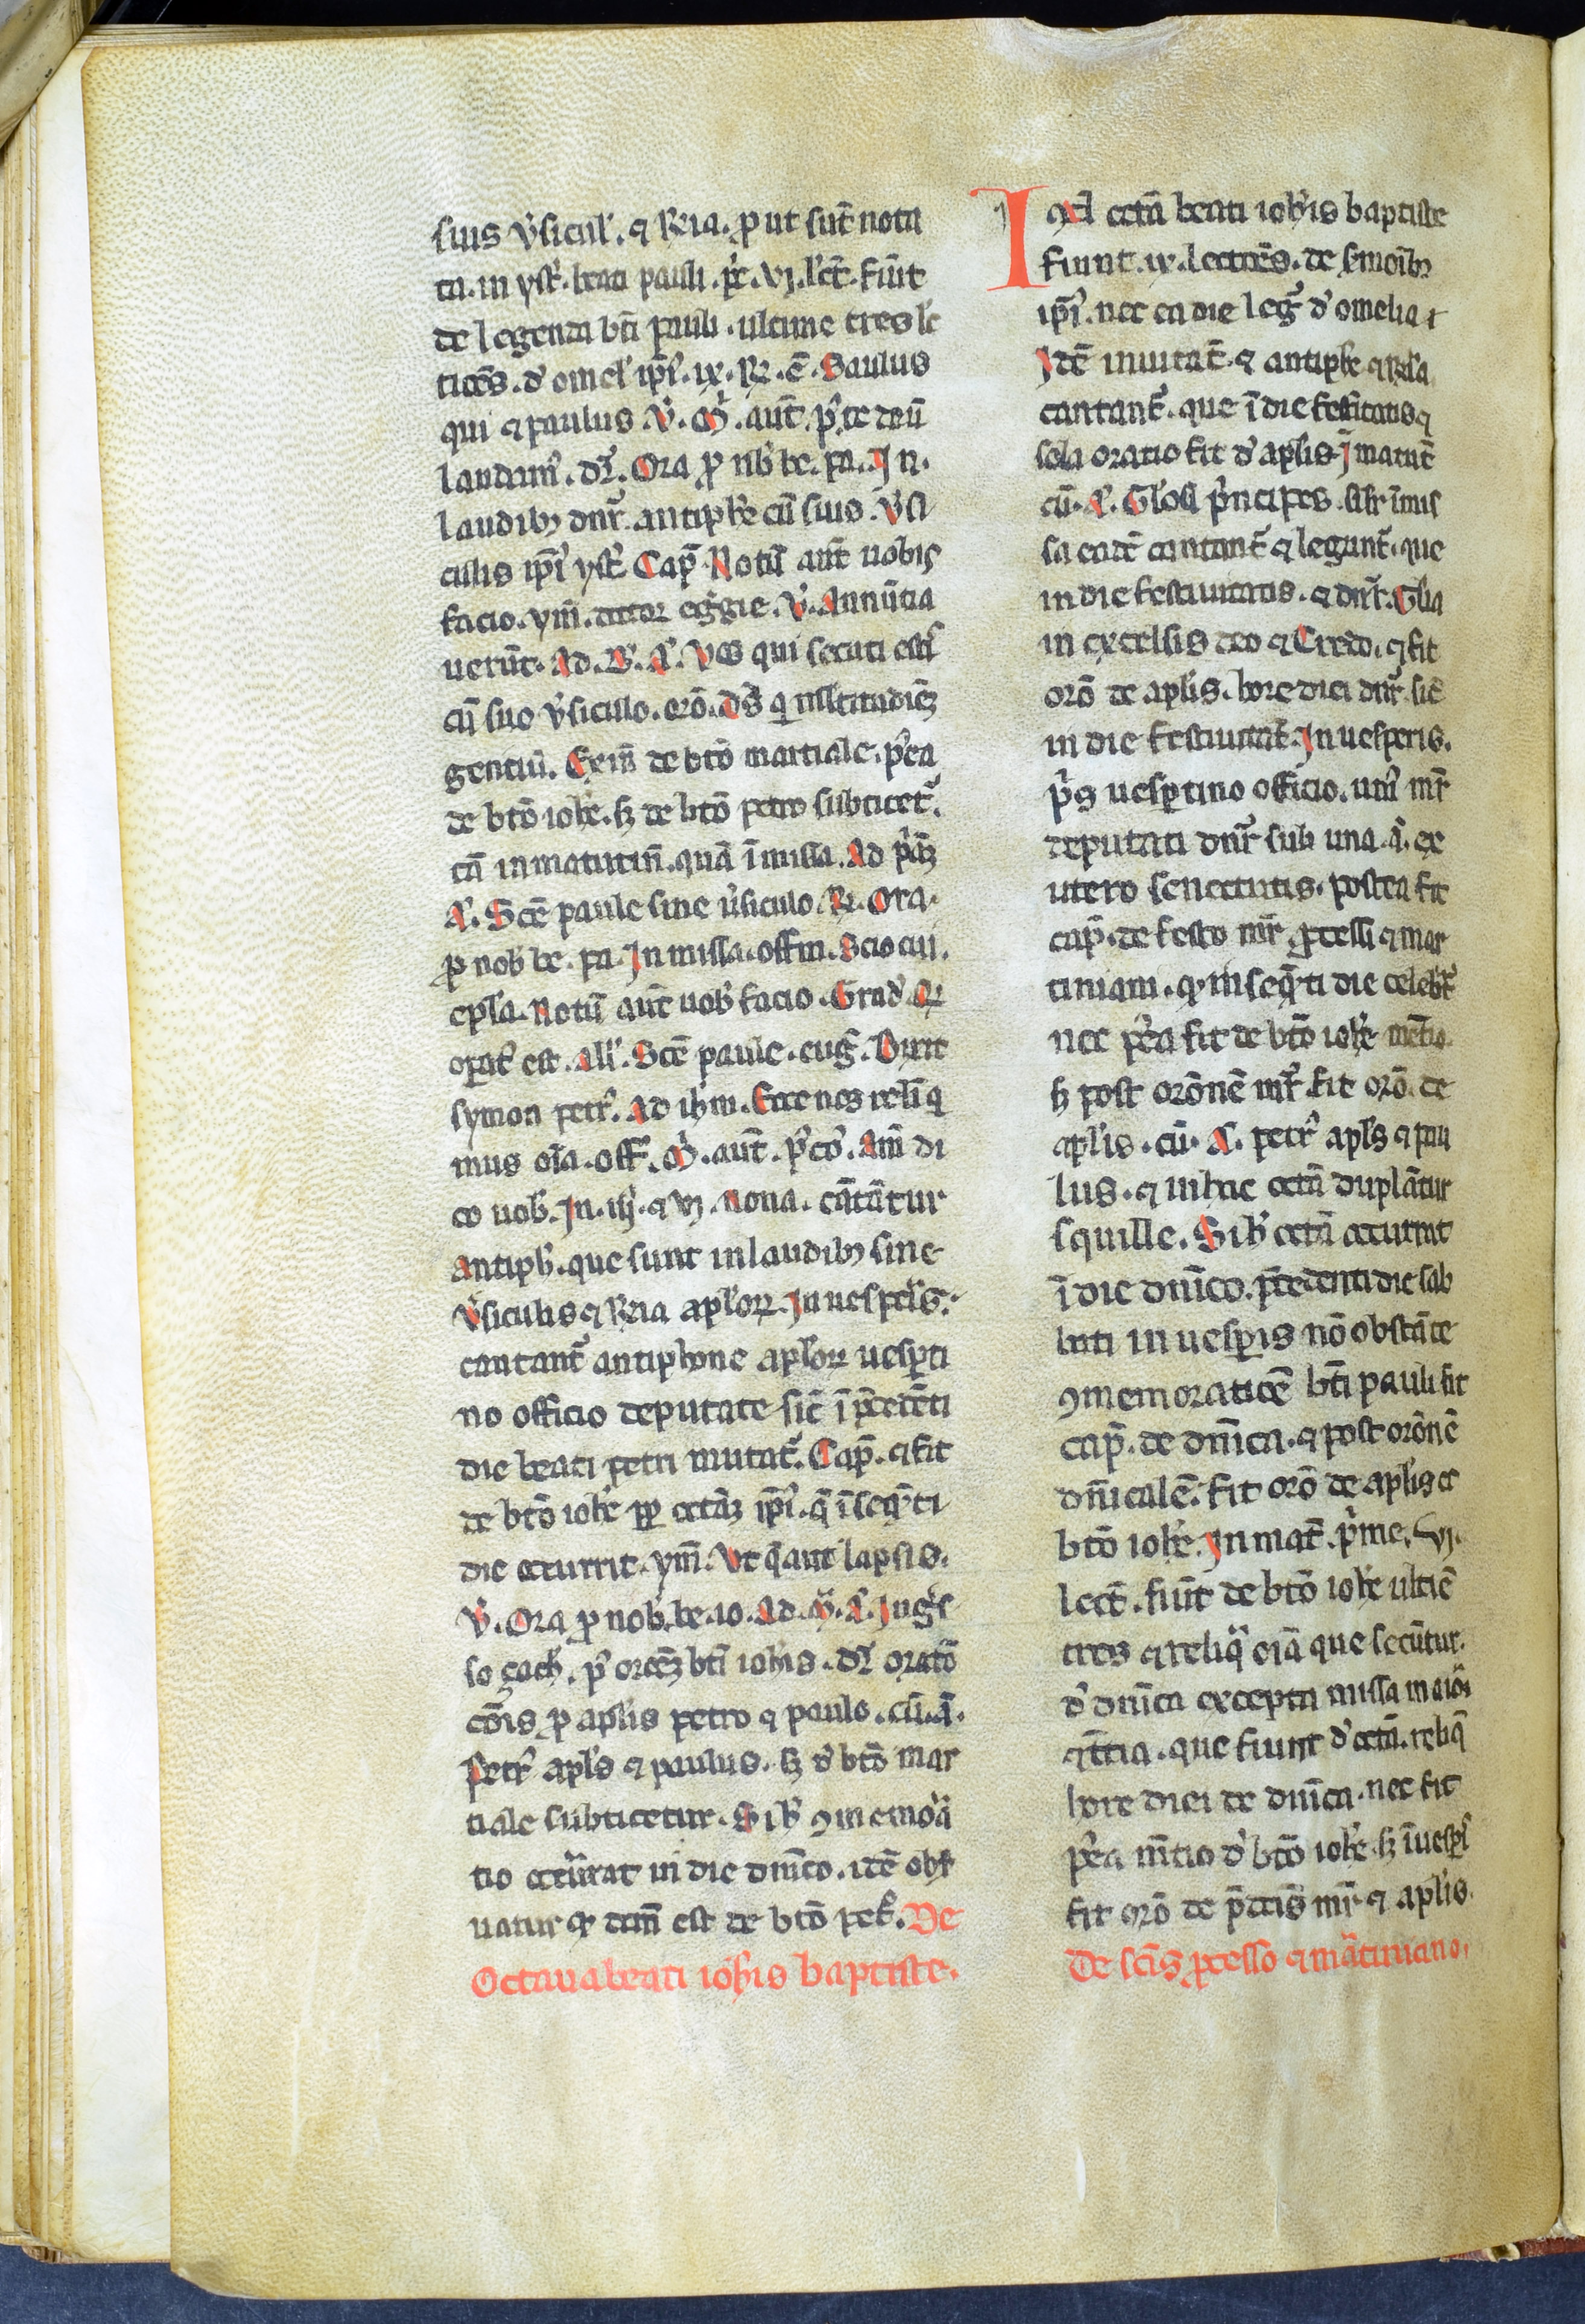 suis v̓sicul̓. ⁊ ꝶ̃ia. ꝓut sūt nota
ta. in yst̓. beati pauli. pͥ̃. vj. lc̃t. fiūt
de legenda bt̄i pauli. ultime tres lc̄
tiōes. d̓ omel̓ ip̄i. ix. ꝶ. ē. Saulus
qui ⁊ paulus ℣. ꝙ̓. aut̄. p̓. te deū
laudam̓. dr̄. Ora ꝓ nob̓ be. pa. In.
laudibꝫ dn̄r. antiph̓e cū suis. v̓si
culis ip̄i yst̓. Cap̄. Notū aut̄ uobis
facio. ym̄. doctor eg̓gie. ℣. Annūtia
uerūt. Ad. B̓. A̓. Vos qui secuti estis
cū suo v̓siculo. orō. Ds̄ qͥ ml̓titudīeꝫ
gentiū. Exin̄ de btō martiale. p̓ea
de btō ioh̓e. sꝫ de btō petro subticet̓.
tā in matutin̄. quā ī missa. Ad p̓āꝫ
A̓. Scē paule sine v̓siculo. ꝶ. Ora.
ꝓ nob̓ be. pa. In missa. offm̄. Scio cui.
epl̓a. Notū aut̄ uob̓ facio. Grad̓. Qͥ
oꝑat̓ est. All̓. Scē paule. eug̓. Dixit
symon petr̓. Ad ih̄m. Ecce nos relīqͥ
mus oīa. Off̓. ꝙ̓. aut̄. p̓. cō. Am̄ di
co uob̓. In. iij. ⁊ vj. nona. cātātur
antiph̓. que sunt in laudibꝫ sine
v̓siculis ⁊ ꝶ̃ia apl̓oꝝ. In uesper̓is.
cantant̓ antiphone apl̓oꝝ uesꝑti
no officio deputate sic̄ ī p̄cedēti
die beati petri mutat̓. Cap̄. ⁊ fit
de btō ioh̓e ꝓp̄ octāꝫ ip̄i. q̄ ī seq̄nti
die occurrit. ym̄. Ut q̄ant laxsis.
℣. Ora ꝓ nob̓. be. io. Ad. m̓. A̓. Ing̓s
so çach̓. p̓ orōeꝫ bt̄i ioh̄is. dr̄ oratō
cōis ꝓ apl̓is petro ⁊ paulo. cū. a̓.
Petr̓ apl̓s ⁊ paulus. sꝫ d̓ btō mar
tiale subticetur. Si h̓ ꝯmemora
tio occurrat in die dn̄ico. itē obs̓
uatur qͩ dictū est de btō pet̓. De
Octaua beati ioh̄is baptiste.
In octa beati ioh̓is baptiste
fiunt. ix. lectiōes. de s̓moībꝫ
ip̄i. nec ea die leg̓ d̓ omelia ⁊
Idē inuitat̄. ⁊ antiph̓e ⁊ ꝶ̃ia
cantant̓. que ī die festiuitatis ⁊
sola oratio fit d̓ apl̓is. Ī matut̄
cū. A̓. Gl̓osi p̓ncipes. sil̓r ī mis
sa eadē cantant̓ ⁊ legunt̓. que
in die festiuitatis. ⁊ dn̄r. Gl̓ia
in excelsis deo ⁊ Credo. ⁊ fit
orō de apl̓is. hore diei dn̄r. sic̄
in die festiuitat̄. In uesperis.
p̓s uesꝑtino officio. um̓ mr̄
deputati dn̄r sub una. a̓. ex
utero senectutis. postea fit
cap̄. de festo mr̄. ꝓcessi ⁊ mar
tiniani. qͥ in seq̄nti die celebr̓
nec p̓ea fit de btō ioh̓e mētio.
sꝫ post orōnē mr̄. fit orō. de
apl̓is. cū. A̓. petr̓ apl̓s ⁊ pau
lus. ⁊ in hac octā duplātur
squille. Si h̓ octā occurrit
ī die dn̄ico. p̄cedenti die sab
bati in uesꝑis nō obstāte
ꝯmemoratiōe bt̄i pauli fit
cap̄. de dn̄ica. ⁊ post orōnē
dn̄icalē. fit orō de apl̓is ⁊
btō ioh̓e. In mat̄. p̓me. vj.
lect̄. fiūt de btō ioh̓e ultīe
tres ⁊ reliq̄ oīa que secūtur.
d̓ dn̄ica excepta missa maiori
⁊ t̓tia. que fiunt d̓ octā. reliq̄
hore diei de dn̄ica. nec fit
p̓ea mētio d̓ btō ioh̓e. sꝫ ī uesꝑi
fit orō de p̄dictis mr̄ ⁊ apl̓is.
De scīs ꝓcesso ⁊ mātiniano.